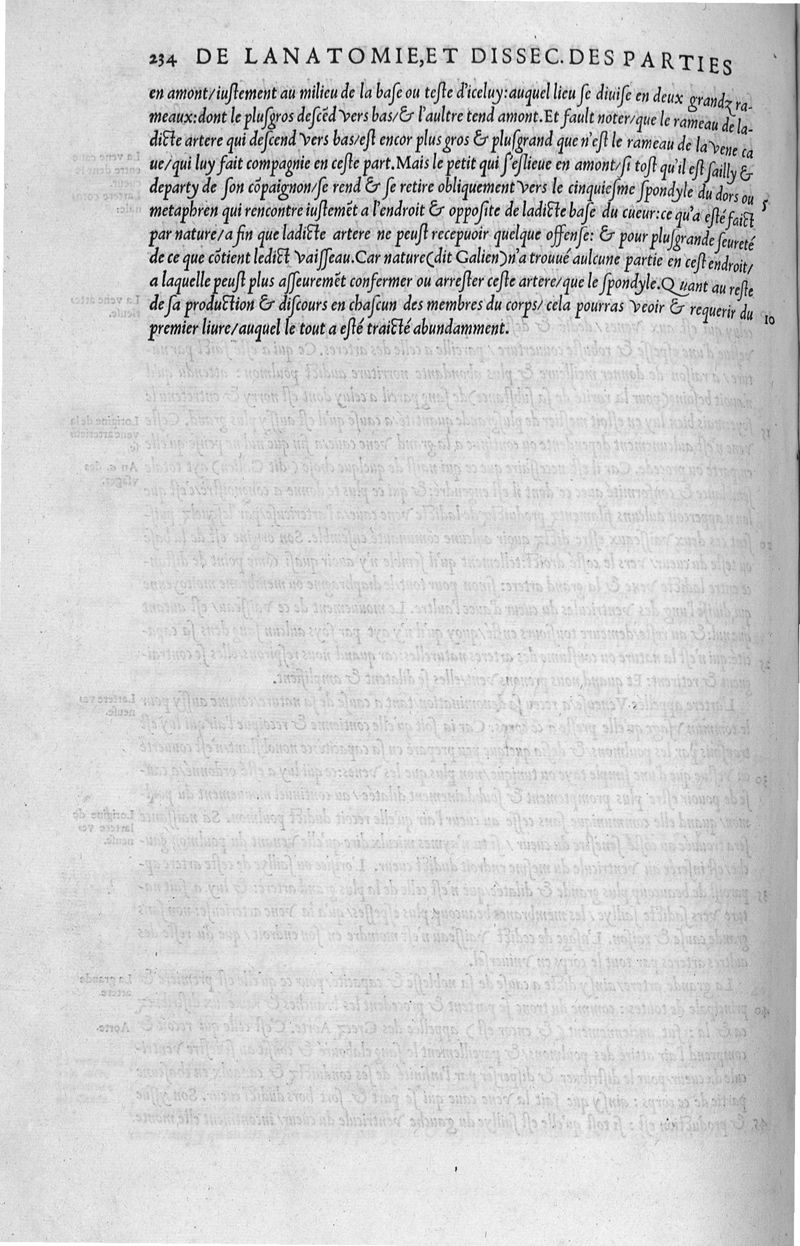 234 DE LANATOMIE,ET DISSEC. DES PARTIES
en amont/iustement au milieu de la base ou teste d'iceluy:auquel lieu se diuise en deux grandz ra-
meaux:dont le plusgros descẽd vers bas/& l'aultre tend amont.Et fault noter/que le rameau de la-
dicte artere qui descend vers bas/est encor plus gros & plusgrand que n'est le rameau de la vene ca
ue/qui luy fait compagnie en ceste part.Mais le petit qui s'eslieue en amont/si tost qu'il est sailly &
departy de son cõpaignon/se rend & se retire obliquement vers le cinquiesme spondyle du dors ou
5
metaphren qui rencontre iustemẽt a l'endroit & opposite de ladicte base du cueur:ce qu'a esté faict
par nature/a fin que ladicte artere ne peust recepuoir quelque offense: & pour plusgrande seureté
de ce que cõtient ledict vaisseau.Car nature(dit Galien)n'a trouué aulcune partie en cest endroit/
a laquelle peust plus asseuremẽt confermer ou arrester ceste artere/que le spondyle.Quant au reste
de sa production & discours en chascun des membres du corps/cela pourras veoir & requerir du
10
premier liure/auquel le tout a esté traicté abundamment.